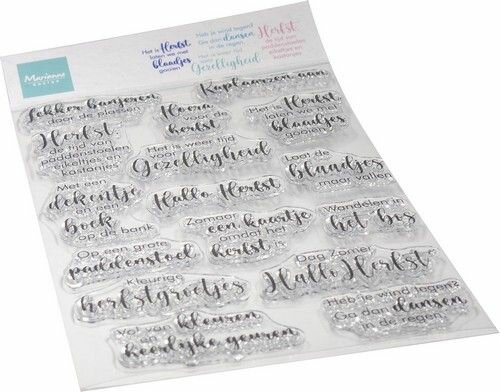 Marianne
DESIGN
Het is Herfst
laten we met
blaadjes
gooien
Heb je wind tegen?
Ga dan dansen
in de regen
Het is weer tijd
Gezelligheid
Herfst
de tijd van
paddenstoelen
eikeltjes en
kastanjes
Lekker banjeren
door de plassen
Hoera
voor de
herfst
Kaplaarzen aan
Het is Herfst
laten we met
blaadjes
gooien
Herfst
de tijd van
paddenstoelen
eikeltjes en
kastanjes
Het is weer tijd
voor
Gezelligheid
Laat de
blaadjes
maar vallen
Met een
dekentje
en een
boek
op de bank
Hallo Herfst
Zomaar
een kaartje
omdat het
herfst is
Wandelen in
het bos
Op een grote
paddenstoel
Dag Zomer
Hallo Herfst
Kleurige
herfstgroetjes
Heb je wind tegen?
Ga dan dansen
in de regen
Vol van kleuren
en
heerlijke geuren